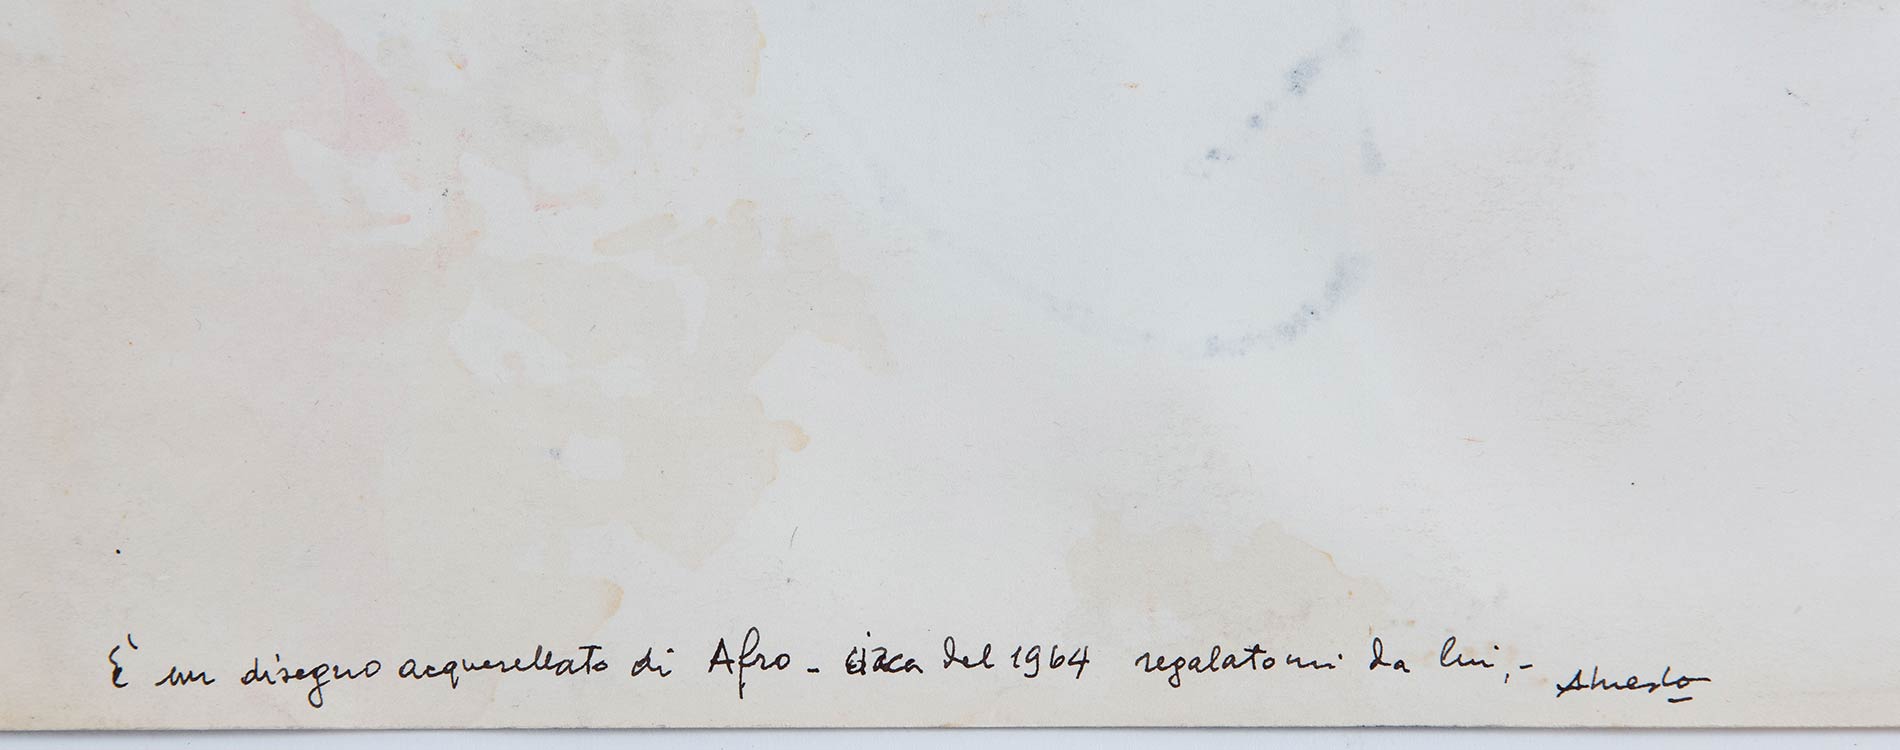 È un disegno acquerellato di Afro - circa del 1964 regalatomi da lui,-